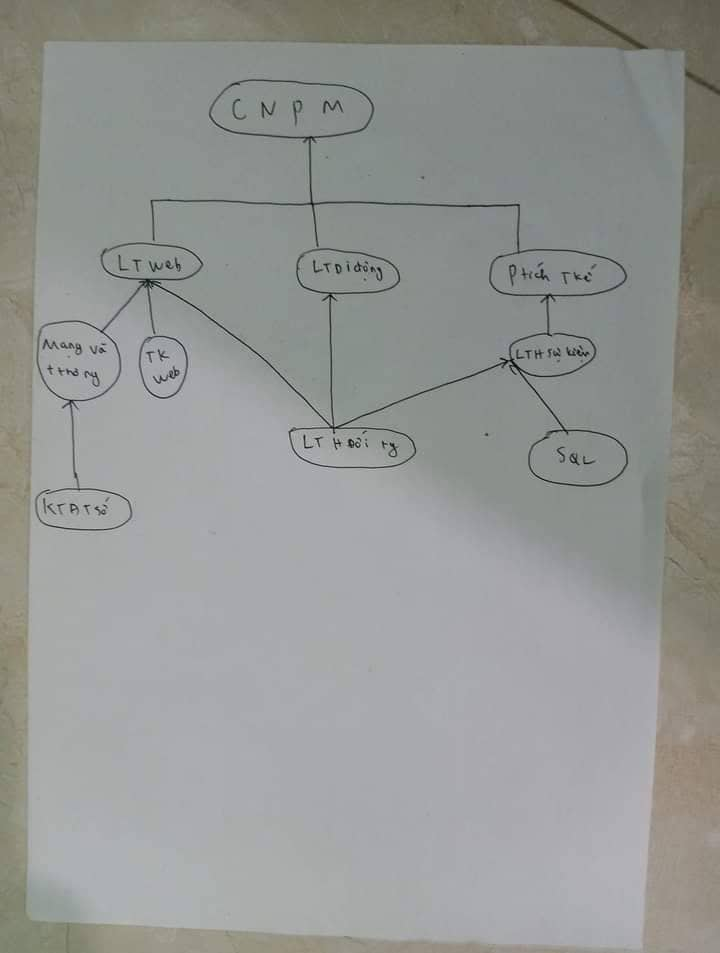 CNPM
LT Web
LT Di động
Ptích Tkế
Mạng và
tthông
TK
Web
LTH Sự kiện
LTH Đối tg
SQL
KTĐT Số